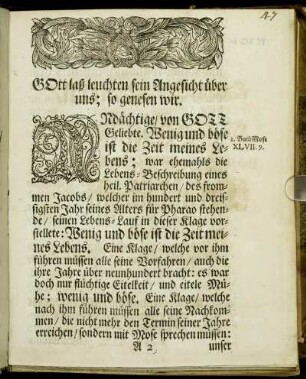 47
GOtt laß leuchten sein Angesicht über
uns; so genesen wir.
ANdächtige/ von GOTT
Geliebte. Wenig und böse
ist die Zeit meines Le-
bens; war ehemahls die
Lebens-Beschreibung eines
heil. Patriarchen/ des from-
men Jacobs/ welcher im hundert und dreis-
sigsten Jahr seines Alters für Pharao stehen-
de/ seinen Lebens-Lauf in dieser Klage vor-
stellete: Wenig und böse ist die Zeit mei-
nes Lebens. Eine Klage/ welche vor ihm
führen müssen alle seine Vorfahren/ auch die
ihre Jahre über neunhundert bracht: es war
doch nur flüchtige Eitelkeit/ und eitele Mü-
he: wenig und böse. Eine Klage/ welche
nach ihm führen müssen alle seine Nachkom-
men/ die nicht mehr den Termin seiner Jahre
erreichen/ sondern mit Mose sprechen müssen:
A 2 unser
1. Buch Mose
XLVII. 9.